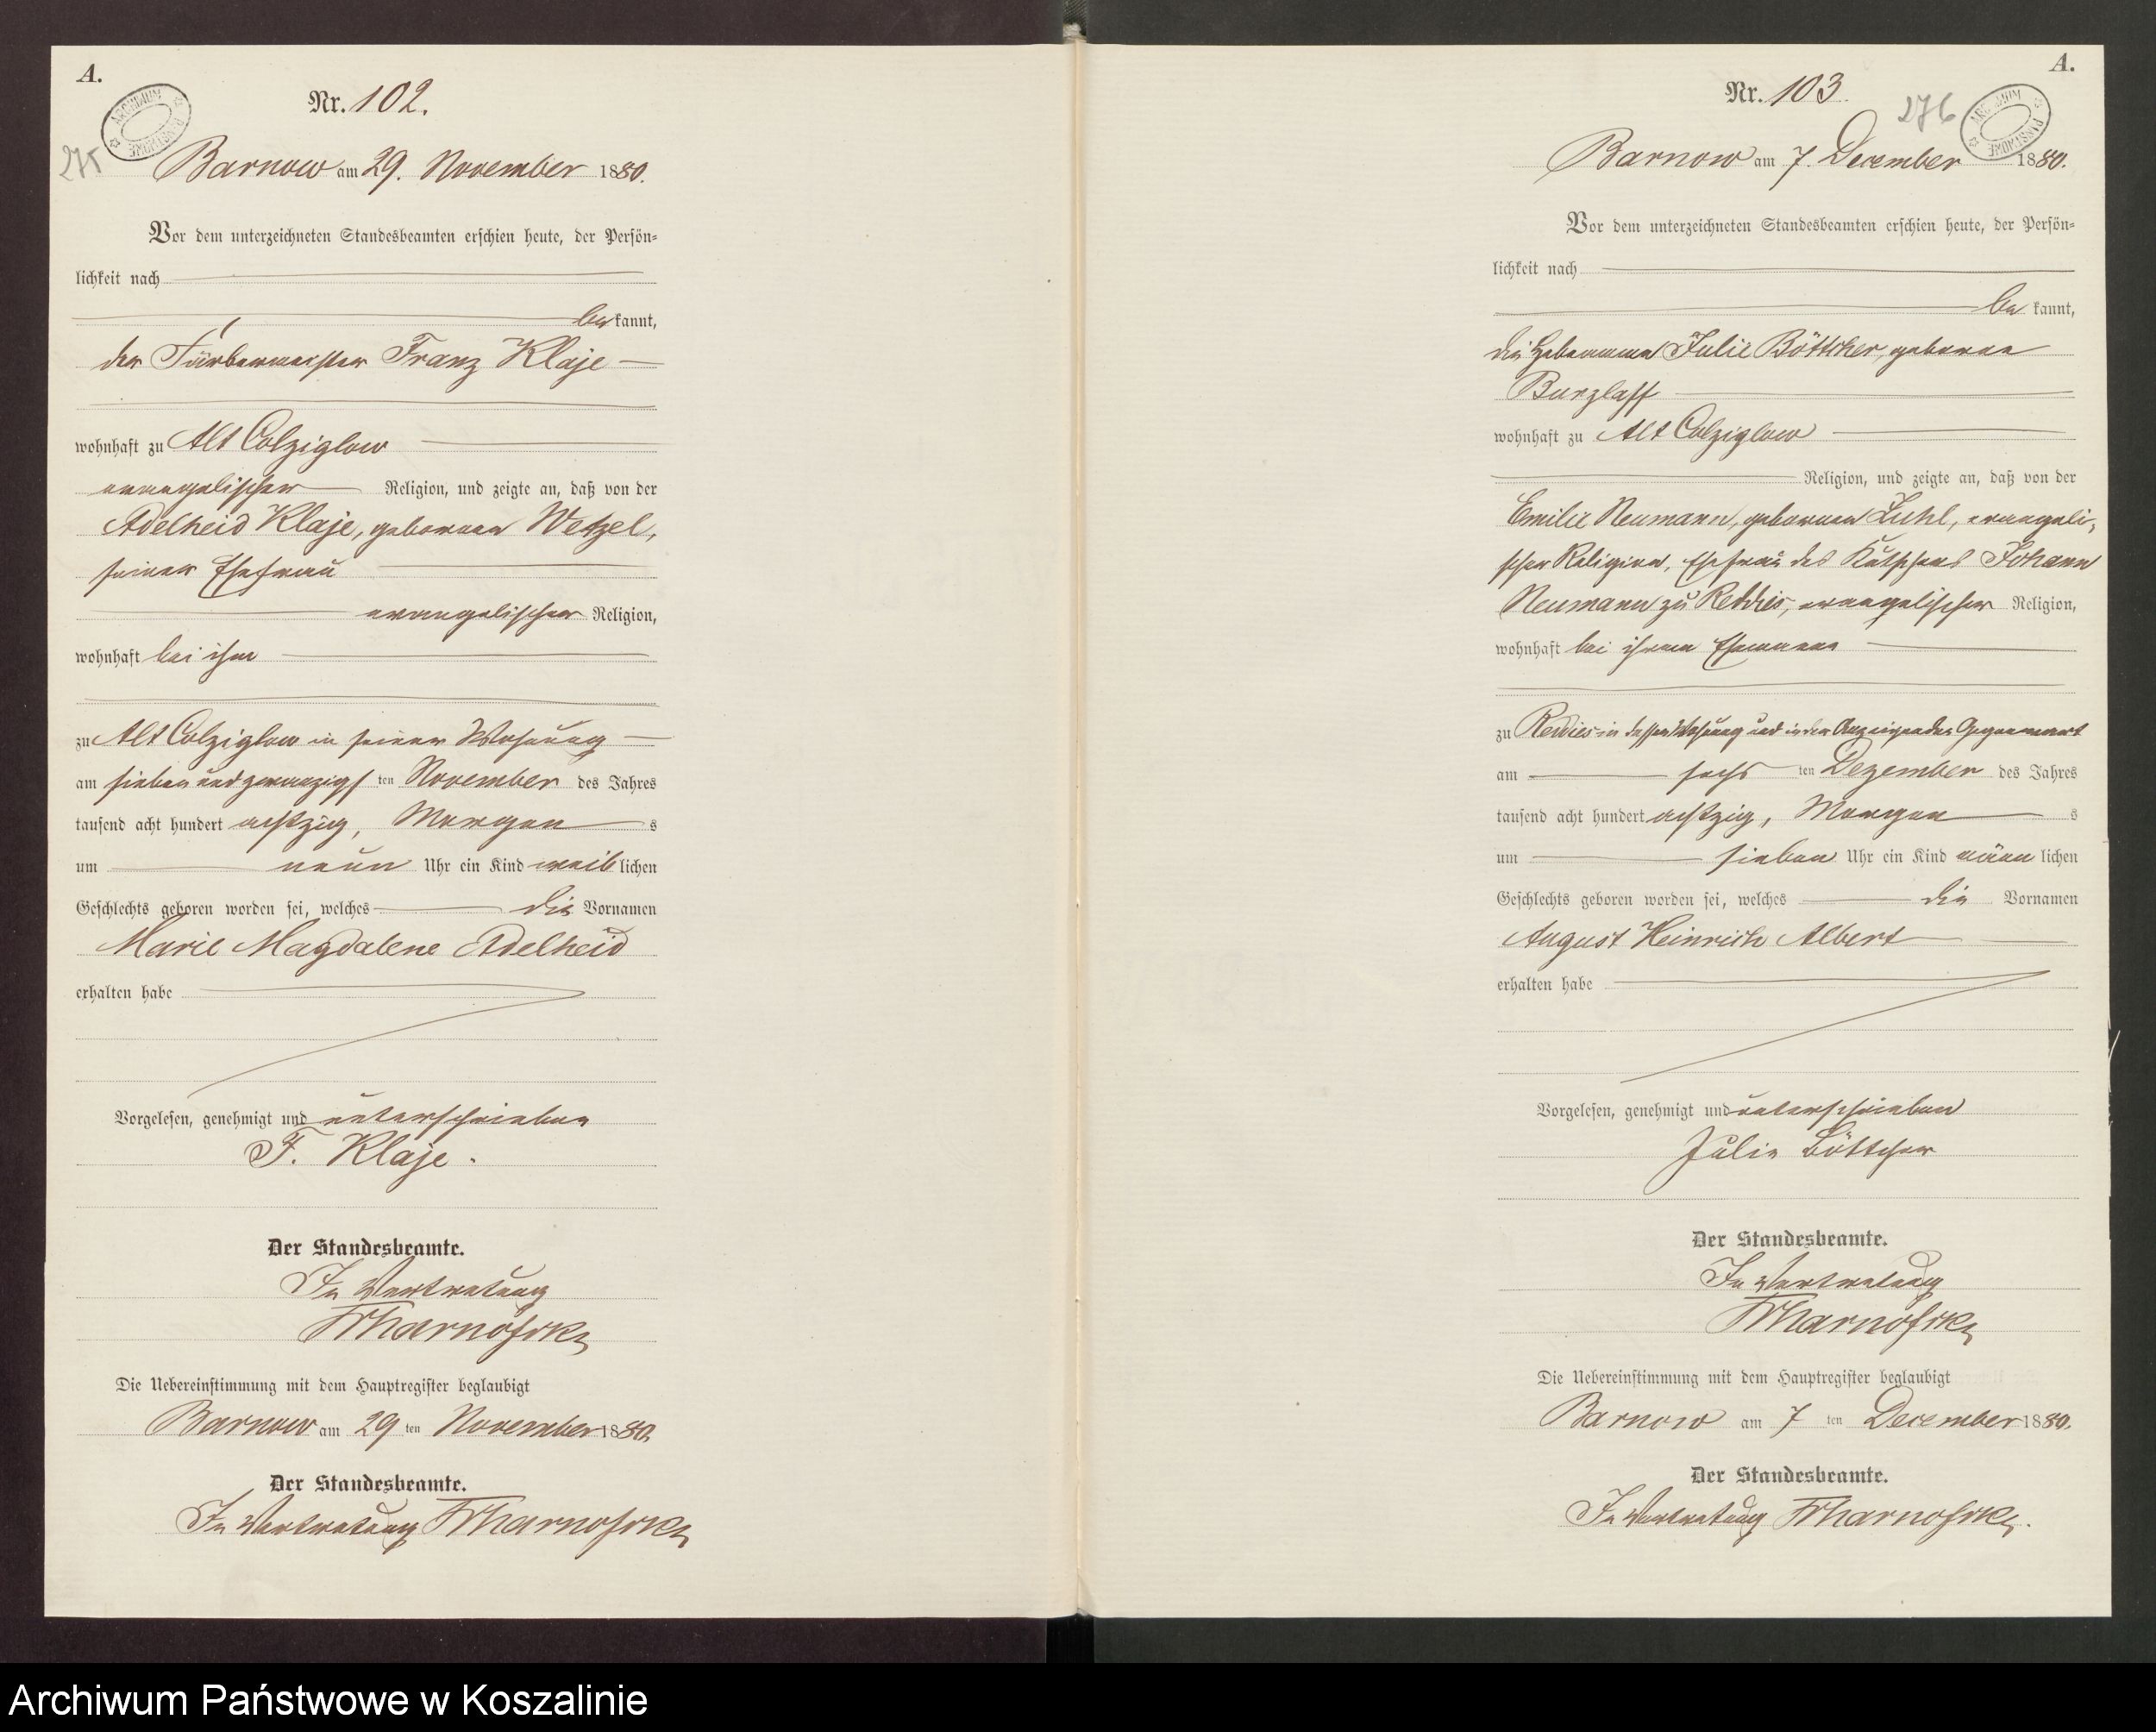 A.
ARCHIWUM PAŃSTWOWE
275
Nr. 102.
Barnow am 29. November 1880.
Vor dem unterzeichneten Standesbeamten erschien heute, der Persön-
lichkeit nach
bekannt,
der Färbermeister Franz Klaje
wohnhaft zu Alt Colziglow
evangelischer Religion, und zeigte an, daß von der
Adelheid Klaje, geborenen Wetzel,
seiner Ehefrau
evangelischer Religion,
wohnhaft bei ihm
zu Alt Colziglow in seiner Wohnung
am sieben und zwanzigsten November des Jahres
tausend acht hundert achtzig, Morgens
um neun Uhr ein Kind weiblichen
Geschlechts geboren worden sei, welches die Vornamen
Marie Magdalene Adelheid
erhalten habe
Vorgelesen, genehmigt und unterschrieben
F. Klaje.
Der Standesbeamte.
In Vertretung
Die Uebereinstimmung mit dem Hauptregister beglaubigt
Barnow am 29 ten November 1880.
Der Standesbeamte.
In Vertretung
A.
ARCHIWUM PAŃSTWOWE
276
Nr. 103.
Barnow am 7. December 1880.
Vor dem unterzeichneten Standesbeamten erschien heute, der Persön-
lichkeit nach
bekannt,
die Hebamme Julie Böttcher, geborene
Burzlaff
wohnhaft zu Alt Colziglow
Religion, und zeigte an, daß von der
Emilie Neumann, geborenen Zuhl, evangeli-
scher Religion, Ehefrau des Kutschers Johann
Neumann zu Reddies, evangelischer Religion,
wohnhaft bei ihrem Ehemanne
zu Reddies in dessen Wohnung und in der Anzeigenden Gegenwart
am sechsten Dezember des Jahres
tausend acht hundert achtzig, Morgens
um sieben Uhr ein Kind männlichen
Geschlechts geboren worden sei, welches die Vornamen
August Heinrich Albert
erhalten habe
Vorgelesen, genehmigt und unterschrieben
Julie Böttcher
Der Standesbeamte.
In Vertretung
Die Uebereinstimmung mit dem Hauptregister beglaubigt
Barnow am 7 ten December 1880.
Der Standesbeamte.
In Vertretung
Archiwum Państwowe w Koszalinie